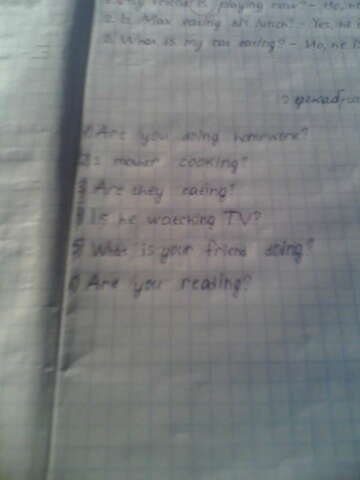 is playing now? - No, he
2. Is Max eating his lunch? - Yes, he
3. What is my cat eating? - No, he is
2 декабря
1) Are you doing homework?
2) Is mother cooking?
3) Are they eating?
4) Is he watching TV?
5) What is your friend doing?
6) Are you reading?